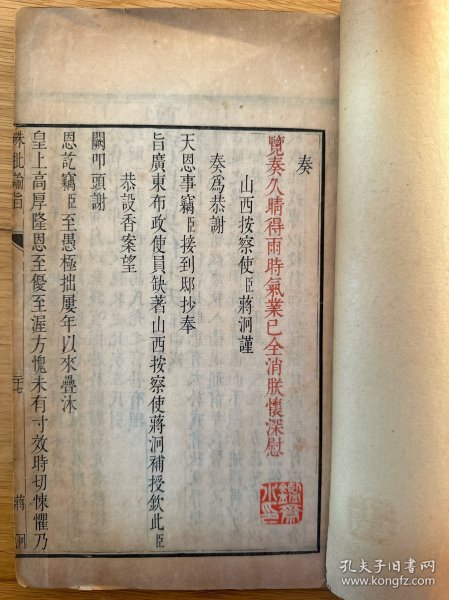 奏
覽奏久晴得雨時氣業已全消朕懷深慰
山西按察使臣蔣洞謹
奏爲恭謝
天恩事竊臣接到邸抄奉
旨廣東布政使員缺著山西按察使蔣洞補授欽此臣
恭設香案望
闕叩頭謝
恩訖竊臣至愚極拙屢年以來疊沐
皇上高厚隆恩至優至渥方愧未有寸效時切悚懼乃
硃批諭旨
二七
蔣洞
孔夫子旧书网
www.kongfz.com